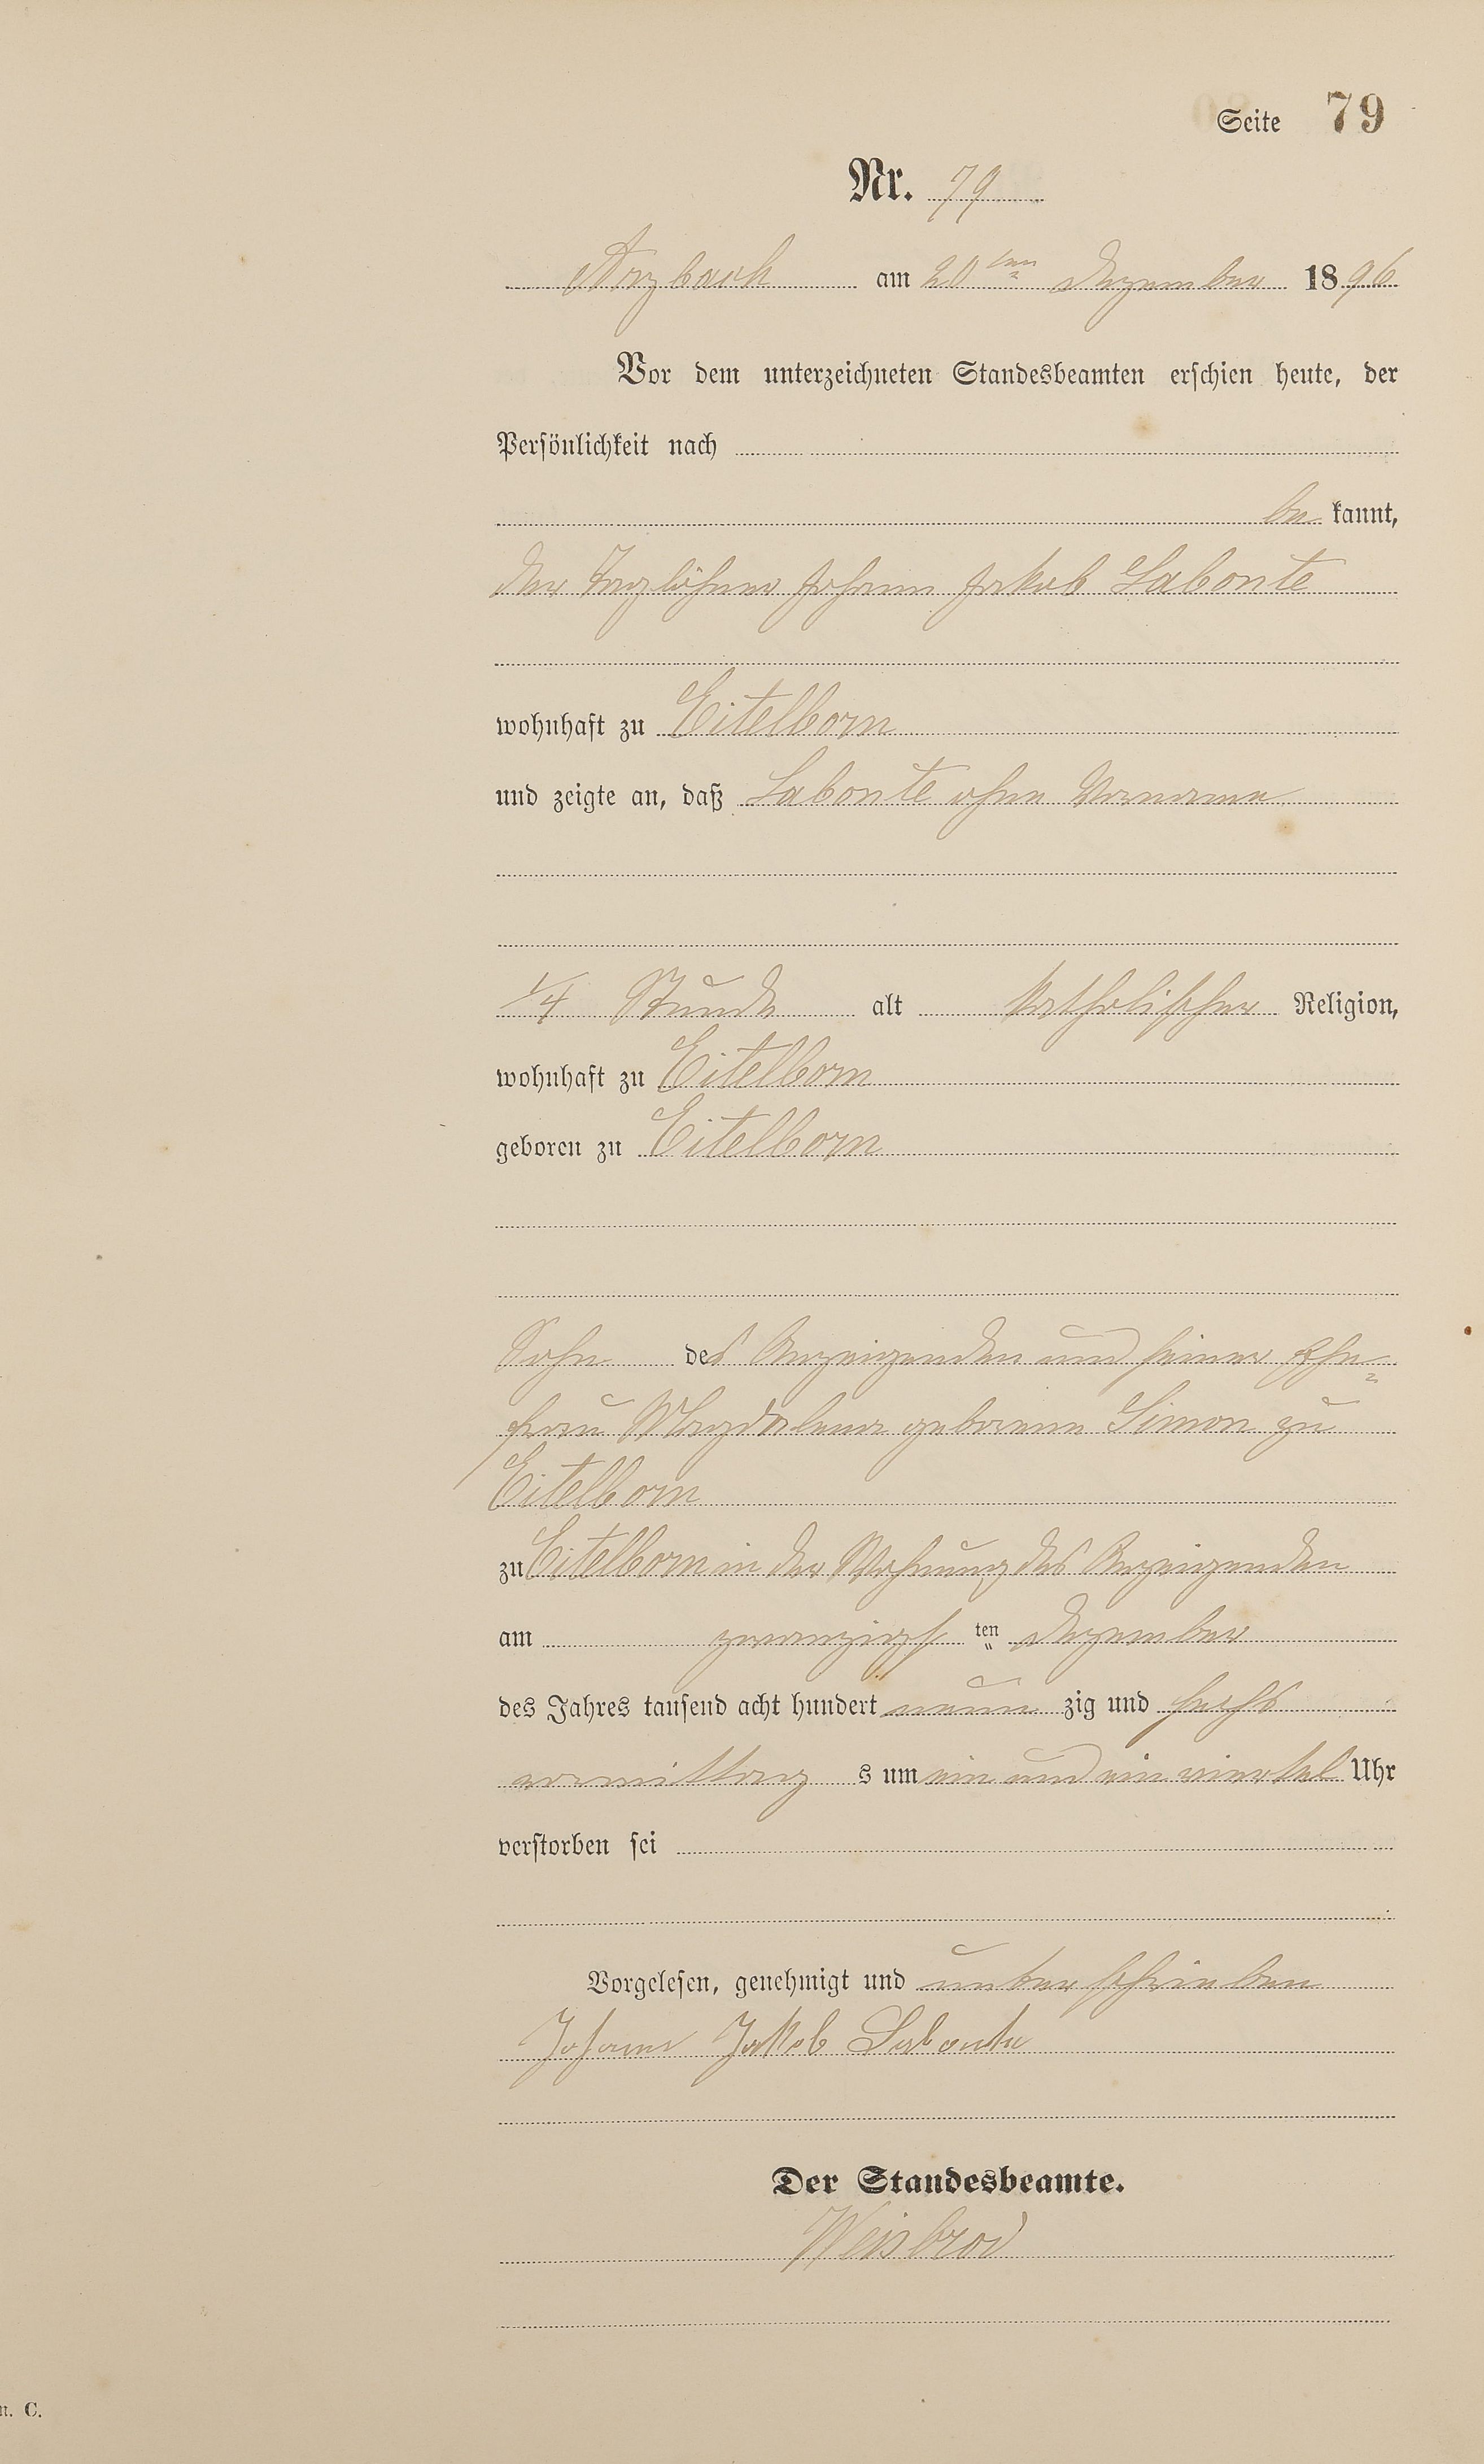 Seite 79
Nr. 79
Arzbach am 20ten Dezember 1896
Vor dem unterzeichneten Standesbeamten erschien heute, der
Persönlichkeit nach
be kannt,
der Taglöhner Johann Jakob Labonte
wohnhaft zu Eitelborn
und zeigte an, daß Labonte ohne Vorname
1/4 Stunde alt katholischer Religion,
wohnhaft zu Eitelborn
geboren zu Eitelborn
Sohn des Anzeigenden und seiner Ehe-
frau Magdalena geborene Simon zu
Eitelborn
zu Eitelborn in der Wohnung des Anzeigenden
am zwanzigsten Dezember
des Jahres tausend acht hundert neun zig und sechs
vormittag s um ein und ein viertel Uhr
verstorben sei
Vorgelesen, genehmigt und unterschrieben
Johann Jakob Labonte
Der Standesbeamte.
Weisbrod
n. C.